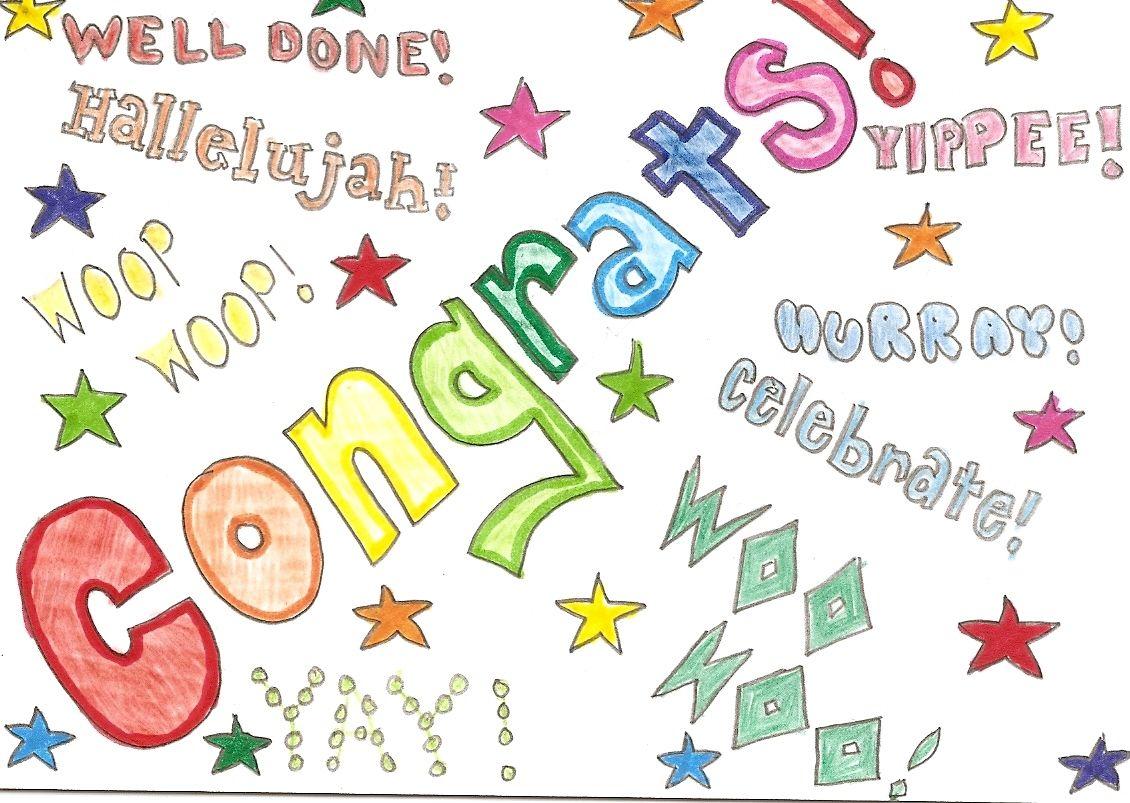 WELL DONE!
Hallelujah!
WOOP
WOOP!
Congrats!
YIPPEE!
HURRAY!
Celebrate!
WOO
WOO!
YAY!